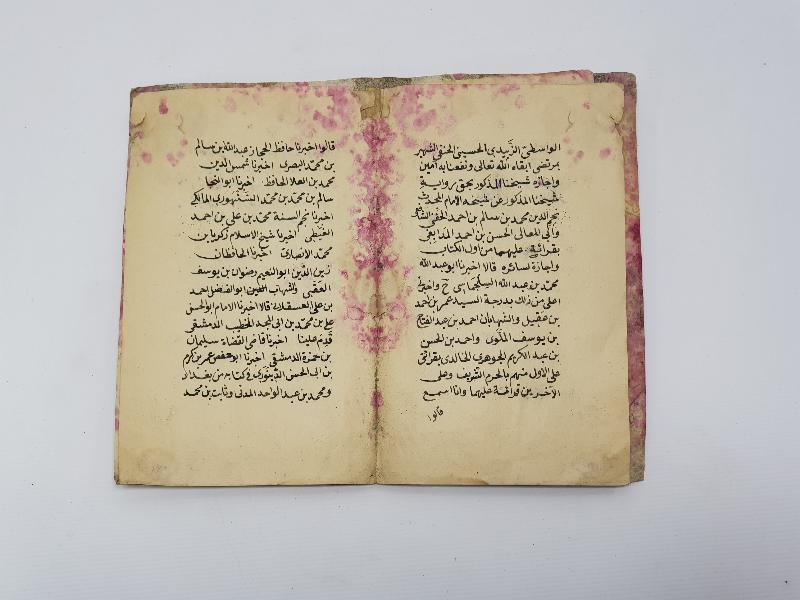 الواسطي الزَّبيدي الحسيني الحنفي الشهير
بمرتضى ابقاه الله تعالى ونفعنا به آمين
واجازه شيخنا المذكور بحق رواية
شيخنا المذكور عن شيخه الامام المحدث
نجم الدين محمد بن سالم بن احمد الحفني الشافعي
وابي المعالي الحسن بن احمد المدابغي
بقرائته عليهما من اول الكتاب
واجازة لسائره قالا اخبرنا ابو عبد الله
محمد بن عبد الله السجلماسى ح واخبرنا
اعلى من ذلك بدرجة السيد عمر بن احمد
بن عقيل والشهابان احمد بن عبد الفتاح
بن يوسف الملّوى واحمد بن الحسن
بن عبد الكريم الجوهري الخالدي بقرائتي
على الاول منهم بالحرم الشريف وعلى
الآخرين قرائة عليهما وانا اسمع
قالوا
قالوا اخبرنا حافظ الحجاز عبد الله بن سالم
بن محمد البصرى اخبرنا شمس الدين
محمد بن العلا الحافظ اخبرنا ابو النجا
سالم بن محمد بن محمد السنهوري المالكي
اخبرنا نجم السنة محمد بن علي بن احمد
الغيطى اخبرنا شيخ الاسلام زكريا بن
محمد الانصارى اخبرنا الحافظان
زين الدين ابو النعيم رضوان بن يوسف
العقبى والشهاب ابو الفضل احمد
بن على العسقلاني قالا اخبرنا الامام ابو الحسن
على بن محمد بن ابى المجد الخطيب الدمشقى
قدم علينا اخبرنا قاضى القضاة سليمان
بن حمزة الدمشقى اخبرنا ابو حفص عمر بن كرم
بن ابى الحسن الدينورى فى كتابه من بغداد
ومحمد بن عبد الواحد المدنى وثابت بن محمد